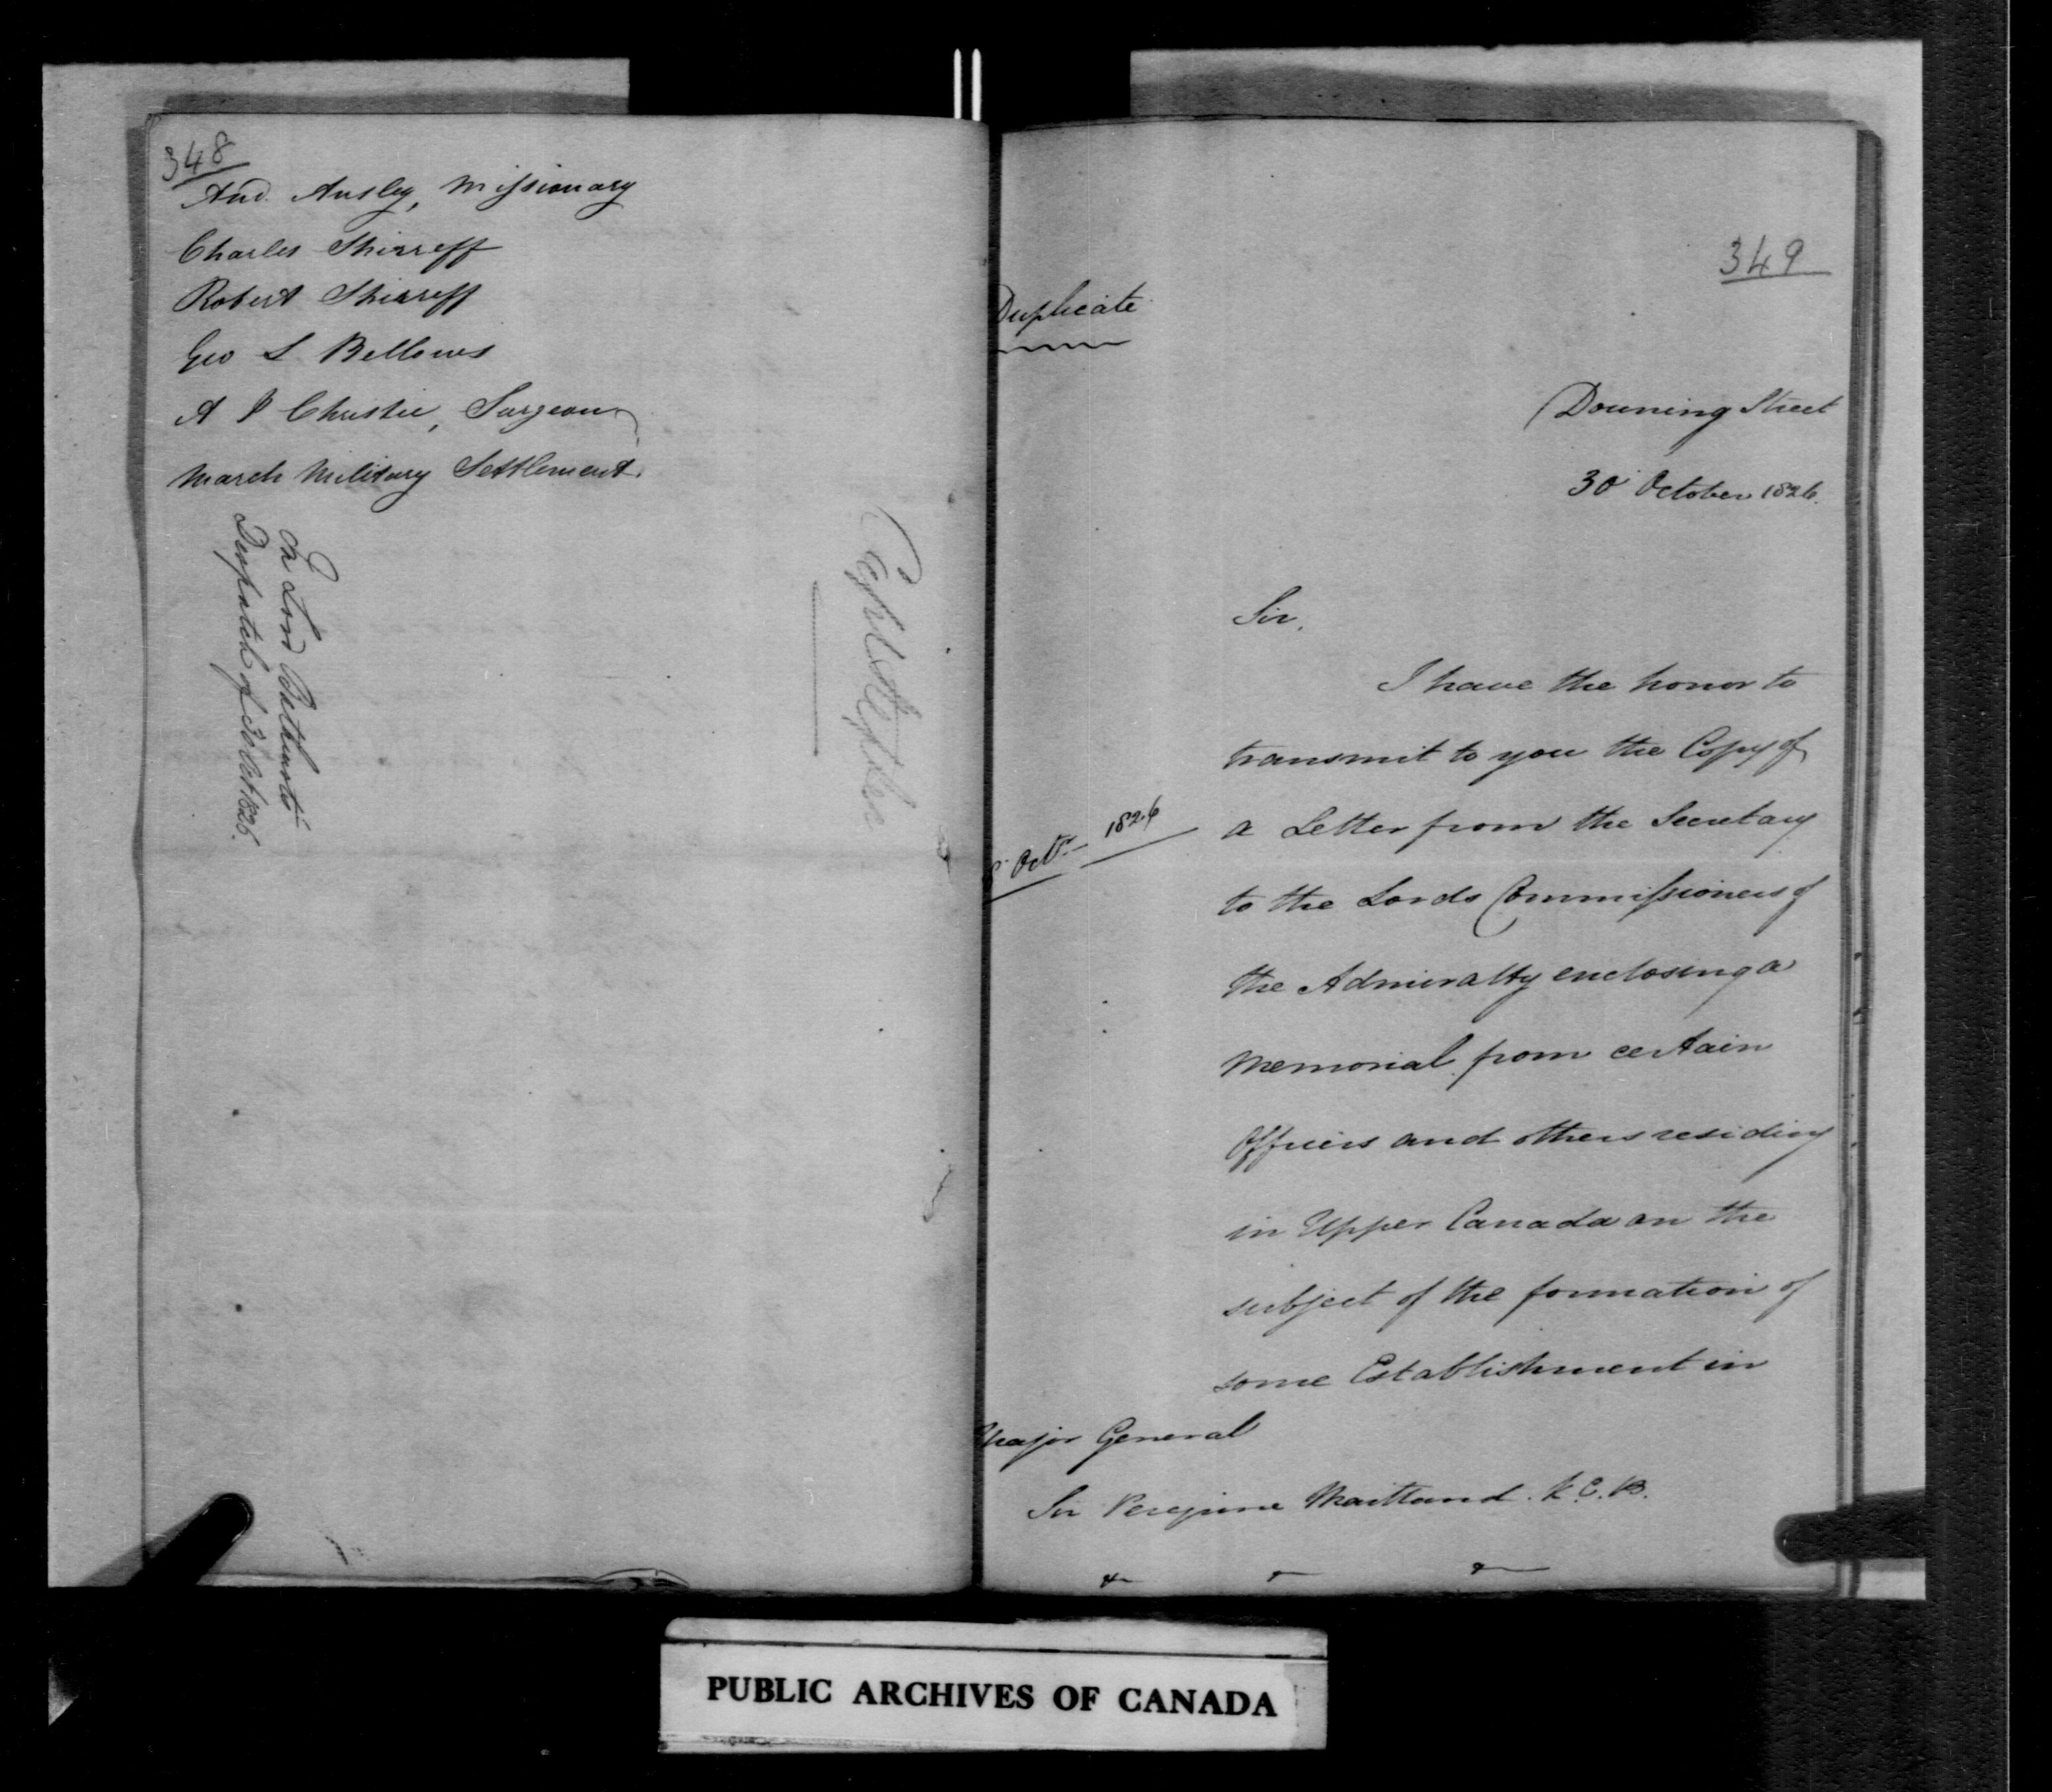 348
And. Ansley, Missionary
Charles Shirreff
Robert Shirreff
Geo L Bellows
A J Christie, Surgeon
March Military Settlement.
In Lord Bathurst's
Despatch of 30 Oct 1826.
349
Duplicate
Downing Street
30 October 1826.
Sir,
I have the honor to
transmit to you the Copy of
Octr. 1826
a Letter from the Secretary
to the Lords Commissioners of
the Admiralty enclosing a
Memorial from certain
Officers and others residing
in Upper Canada on the
subject of the formation of
some Establishment in
Major General
Sir Peregrine Maitland. K.C.B.
PUBLIC ARCHIVES OF CANADA